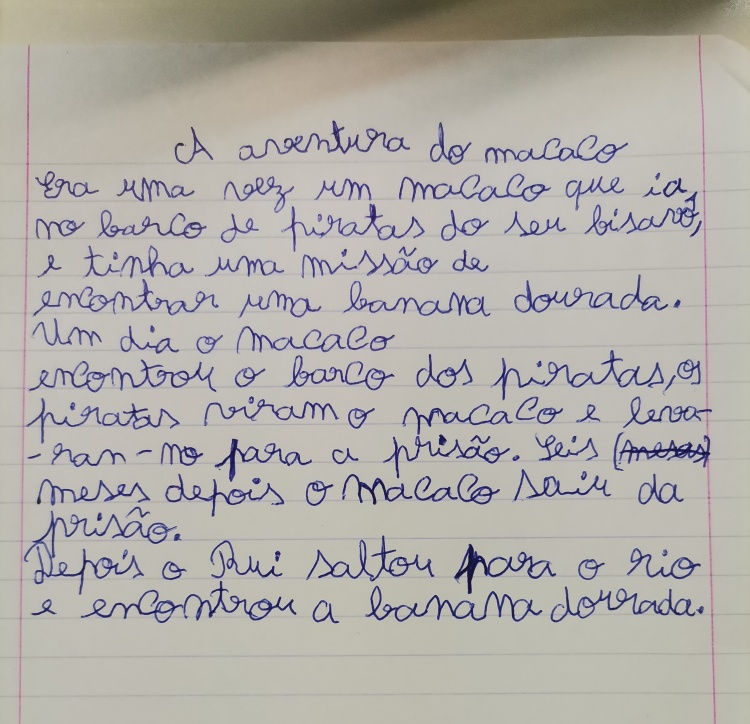 A aventura do macaco
Era uma vez um macaco que ia,
no barco de piratas do seu bisavô,
e tinha uma missão de
encontrar uma banana dourada.
Um dia o macaco
encontrou o barco dos piratas, os
piratas viram o macaco e leva-
-ran-no para a prisão. Seis (mesas)
meses depois o macaco saiu da
prisão.
Depois o Rui saltou para o rio
e encontrou a banana dourada.